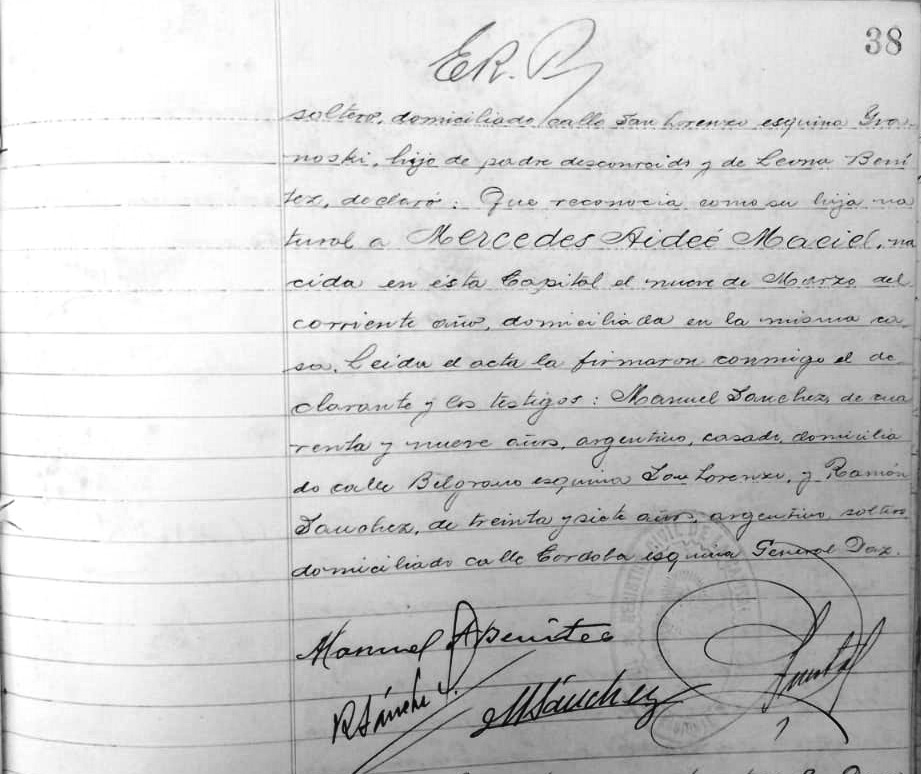 38
E.R.B
soltero, domiciliado calle San Lorenzo esquina Gra-
noski, hijo de padre desconocido y de Leona Bení
tez, declaró: Que reconocia como su hija na
tural a Mercedes Aideé Maciel, na
cida en ésta Capital el nueve de Marzo del
corriente año, domiciliada en la misma ca-
sa. Leida el acta la firmaron conmigo el de
clarante y los testigos: Manuel Sanchez, de cua
renta y nueve años, argentino, casado, domicilia
do calle Belgrano esquina San Lorenzo, y Ramón
Sanchez, de treinta y siete años, argentino, soltero
domiciliado calle Cordoba esquina General Paz.
Manuel A Benites
RSánchez
MSánchez